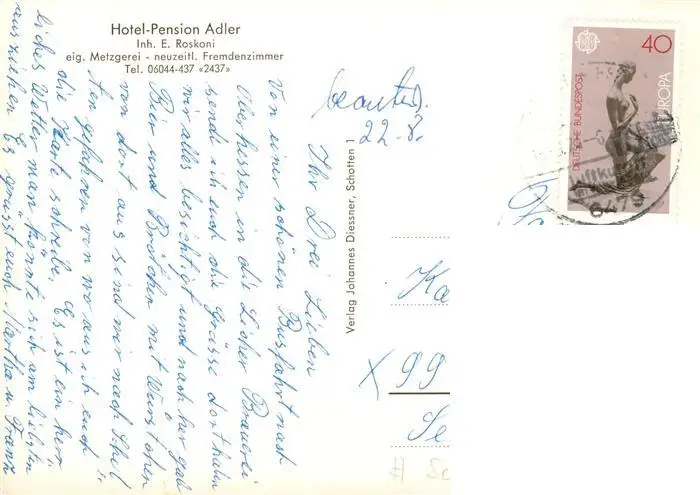 Hotel-Pension Adler
Inh. E. Roskoni
eig. Metzgerei - neuzeitl. Fremdenzimmer
Tel. 06044-437 «2437»
Ihr Drei Lieben
Von einer schönen Busfahrt nach
Oberhessen in die Licher Brauerei
sende ich euch die Grüsse dort haben
wir alles besichtigt und nachher gab
Bier und Brötchen mit Wurst ofen
von dort aus sind wir nach Schot
ten gefahren von wo aus ich euch
die Karte schreibe. Es ist ein herr
liches Wetter man könnte sich am liebsten
ausziehen Es grüsst euch Martha u. Franz
22.8.
Verlag Johannes Diessner, Schotten 1
40
DEUTSCHE BUNDESPOST
EUROPA
6479
Ka
X 99
Se